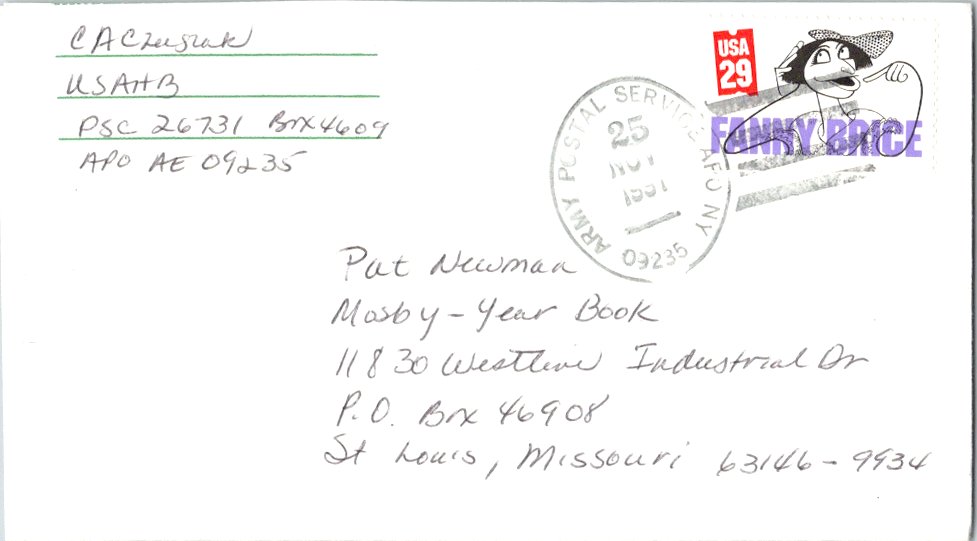 USAHB
PSC 26731 Box 4609
APO AE 09235
USA
29
FANNY BRICE
ARMY POSTAL SERVICE APO NY
25
NOV
1991
09235
Pat Newman
Mosby-Year Book
11830 Westline Industrial Dr
P.O. Box 46908
St Louis, Missouri 63146-9934